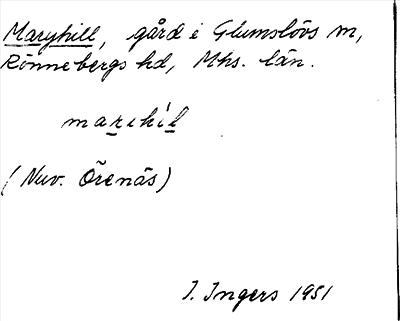 Maryhill, gård i Glumslövs sn,
Rönnebergs hd, Mhs. län.
marihil
(Nuv. Örenäs)
I. Ingers 1951